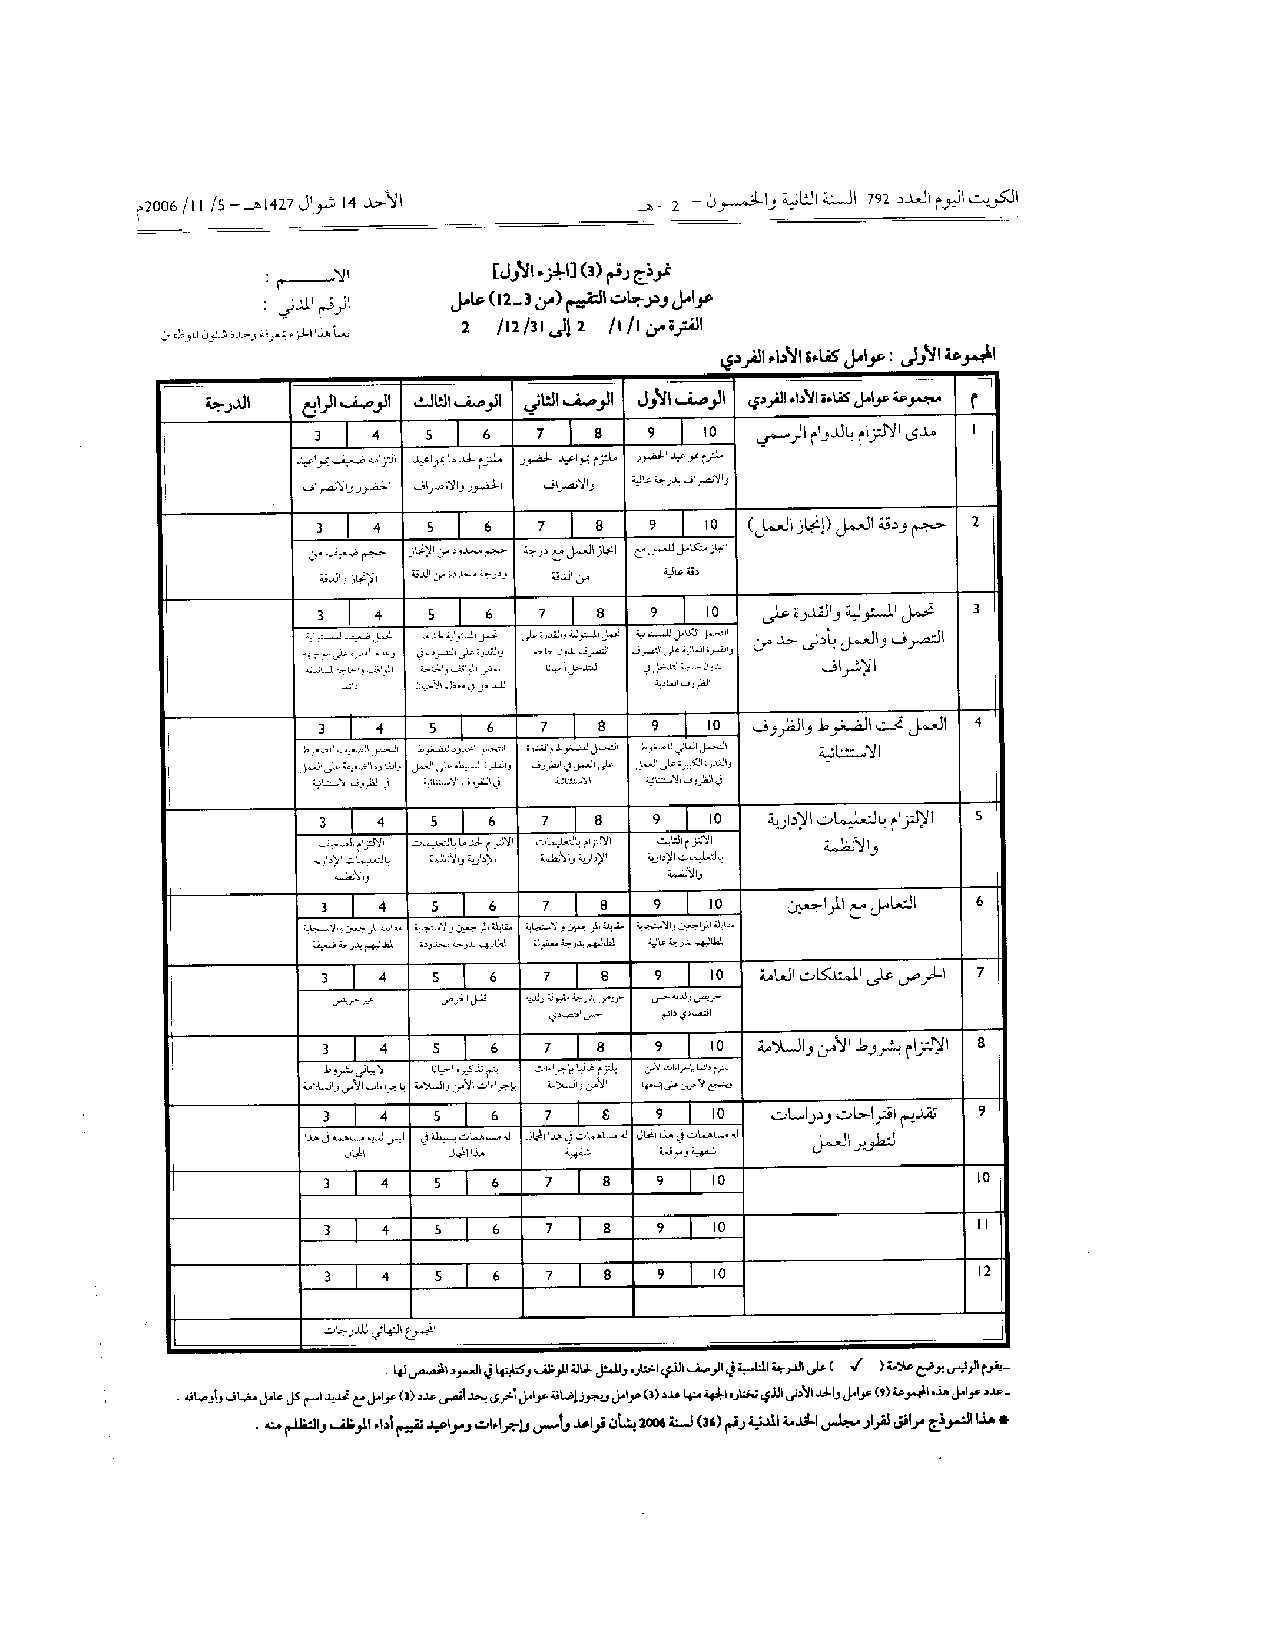 الكويت اليوم العدد 792 السنة الثانية والخمسون – 2 - هـ
الأحد 14 شوال 1427هـ – 5/ 11/ 2006م
نموذج رقم (3) [الجزء الأول]
الاســــم :
عوامل ودرجات التقييم (من 3_12) عامل
الرقم المدني :
الفترة من 1/1/ 2 إلى 12/31/ 2
يعبأ هذا الجزء بمعرفة وحدة شئون الموظفين
المجموعة الأولى : عوامل كفاءة الأداء الفردي
م مجموعة عوامل كفاءة الأداء الفردي الوصف الأول الوصف الثاني الوصف الثالث الوصف الرابع الدرجة
1 مدى الالتزام بالدوام الرسمي 10 9 8 7 6 5 4 3
ملتزم بمواعيد الحضور ملتزم بمواعيد الحضور ملتزم لحد ما بمواعيد التزامه ضعيف بمواعيد
والانصراف بدرجة عالية والانصراف الحضور والانصراف الحضور والانصراف
2 حجم ودقة العمل (إنجاز العمل) 10 9 8 7 6 5 4 3
انجاز متكامل للعمل مع انجاز العمل مع درجة حجم محدود من الإنجاز حجم ضعيف من
دقة عالية من الدقة ودرجة محددة من الدقة الإنجاز والدقة
3 تحمل المسئولية والقدرة على 10 9 8 7 6 5 4 3
التصرف والعمل بأدنى حد من
الإشراف
التحمل الكامل للمسئولية تحمل المسئولية والقدرة على تحمل المسئولية لحد ما تحمل ضعيف للمسئولية
والقدرة العالية على التصرف التصرف بدون حاجة والقدرة على التصرف في
للتدخل أحيانا بعض المواقف والحاجة
الظروف العادية للتدخل في معظم الأحيان دائما
4 العمل تحت الضغوط والظروف 10 9 8 7 6 5 4 3
الاستثنائية
التحمل العالي للضغوط التحمل للضغوط والقدرة التحمل المحدود للضغوط التحمل الضعيف للضغوط
والقدرة الكبيرة على العمل على العمل في الظروف والقدرة البسيطة على العمل والقدرة الضعيفة على العمل
في الظروف الاستثنائية الاستثنائية في الظروف الاستثنائية في الظروف الاستثنائية
5 الإلتزام بالتعليمات الإدارية 10 9 8 7 6 5 4 3
والأنظمة
الالتزام الثابت الالتزام بالتعليمات الالتزام لحد ما بالتعليمات الالتزام الضعيف
بالتعليمات الإدارية الإدارية والأنظمة الإدارية والأنظمة بالتعليمات الإدارية
والأنظمة والأنظمة
6 التعامل مع المراجعين 10 9 8 7 6 5 4 3
مقابلة المراجعين والاستجابة مقابلة المراجعين والاستجابة مقابلة المراجعين والاستجابة مقابلة المراجعين والاستجابة
لمطالبهم بدرجة عالية لمطالبهم بدرجة معقولة لمطالبهم بدرجة محدودة لمطالبهم بدرجة ضعيفة
7 الحرص على الممتلكات العامة 10 9 8 7 6 5 4 3
حريص ولديه حس حريص بدرجة مقبولة ولديه قليل الحرص غير حريص
اقتصادي دائم حس اقتصادي
8 الإلتزام بشروط الأمن والسلامة 10 9 8 7 6 5 4 3
يلتزم دائما بإجراءات الأمن يلتزم غالبا بإجراءات يتم تذكيره أحيانا لا يبالي بشروط
ويشجع الآخرين على إتباعها الأمن والسلامة بإجراءات الأمن والسلامة بإجراءات الأمن والسلامة
9 تقديم اقتراحات ودراسات 10 9 8 7 6 5 4 3
لتطوير العمل
له مساهمات في هذا المجال له مساهمات في هذا المجال له مساهمات بسيطة في ليس لديه مساهمة في هذا
شفهية هذا المجال المجال
10 10 9 8 7 6 5 4 3
11 10 9 8 7 6 5 4 3
12 10 9 8 7 6 5 4 3
المجموع النهائي للدرجات
_يقوم الرئيس بوضع علامة ( ✓ ) على الدرجة المناسبة في الوصف الذي اختاره والممثل لحالة الموظف وكتابتها في العمود المخصص لها .
_ عدد عوامل هذه المجموعة (9) عوامل والحد الأدنى الذي تختاره الجهة منها عدد (3) عوامل ويجوز إضافة عوامل أخرى بحد أقصى عدد (3) عوامل مع تحديد اسم كل عامل مضاف وأوصافه .
* هذا النموذج مرافق لقرار مجلس الخدمة المدنية رقم (36) لسنة 2006 بشأن قواعد وأسس وإجراءات ومواعيد تقييم أداء الموظف والتظلم منه .